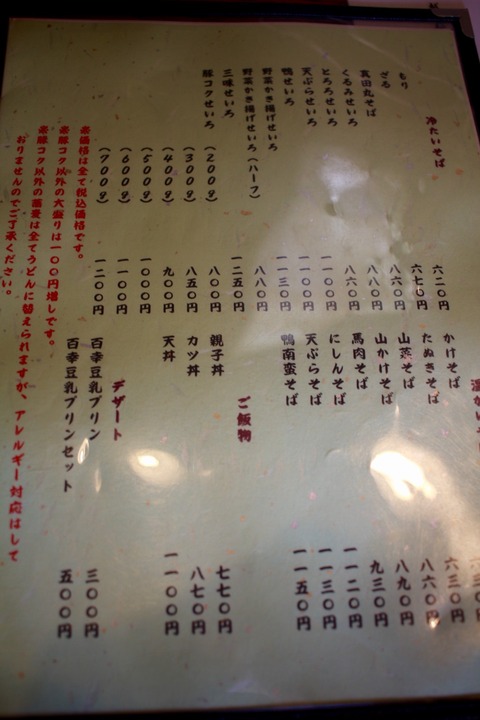 冷たいそば
もり 六二〇円
ざる 六七〇円
真田丸そば 八六〇円
くるみせいろ 八八〇円
とろろせいろ 八六〇円
天ぷらせいろ 一一〇〇円
鴨せいろ 一一〇〇円
野菜かき揚げせいろ 一一三〇円
野菜かき揚げせいろ(ハーフ) 八八〇円
三味せいろ 一二五〇円
豚コクせいろ (200g) 八〇〇円
(300g) 八五〇円
(400g) 九〇〇円
(500g) 一〇〇〇円
(600g) 一一〇〇円
(700g) 一二〇〇円
かけそば
たぬきそば 六三〇円
山菜そば 八六〇円
山かけそば 八九〇円
馬肉そば 九三〇円
にしんそば 一一二〇円
天ぷらそば 一一三〇円
鴨南蛮そば 一一五〇円
ご飯物
親子丼 七七〇円
カツ丼 八七〇円
天丼 一一〇〇円
デザート
百幸豆乳プリン 三〇〇円
百幸豆乳プリンセット 五〇〇円
※価格は全て税込価格です。
※豚コク以外の大盛りは一〇〇円増しです。
※豚コク以外の蕎麦は全てうどんに替えられますが、アレルギー対応はして
おりませんのでご了承ください。